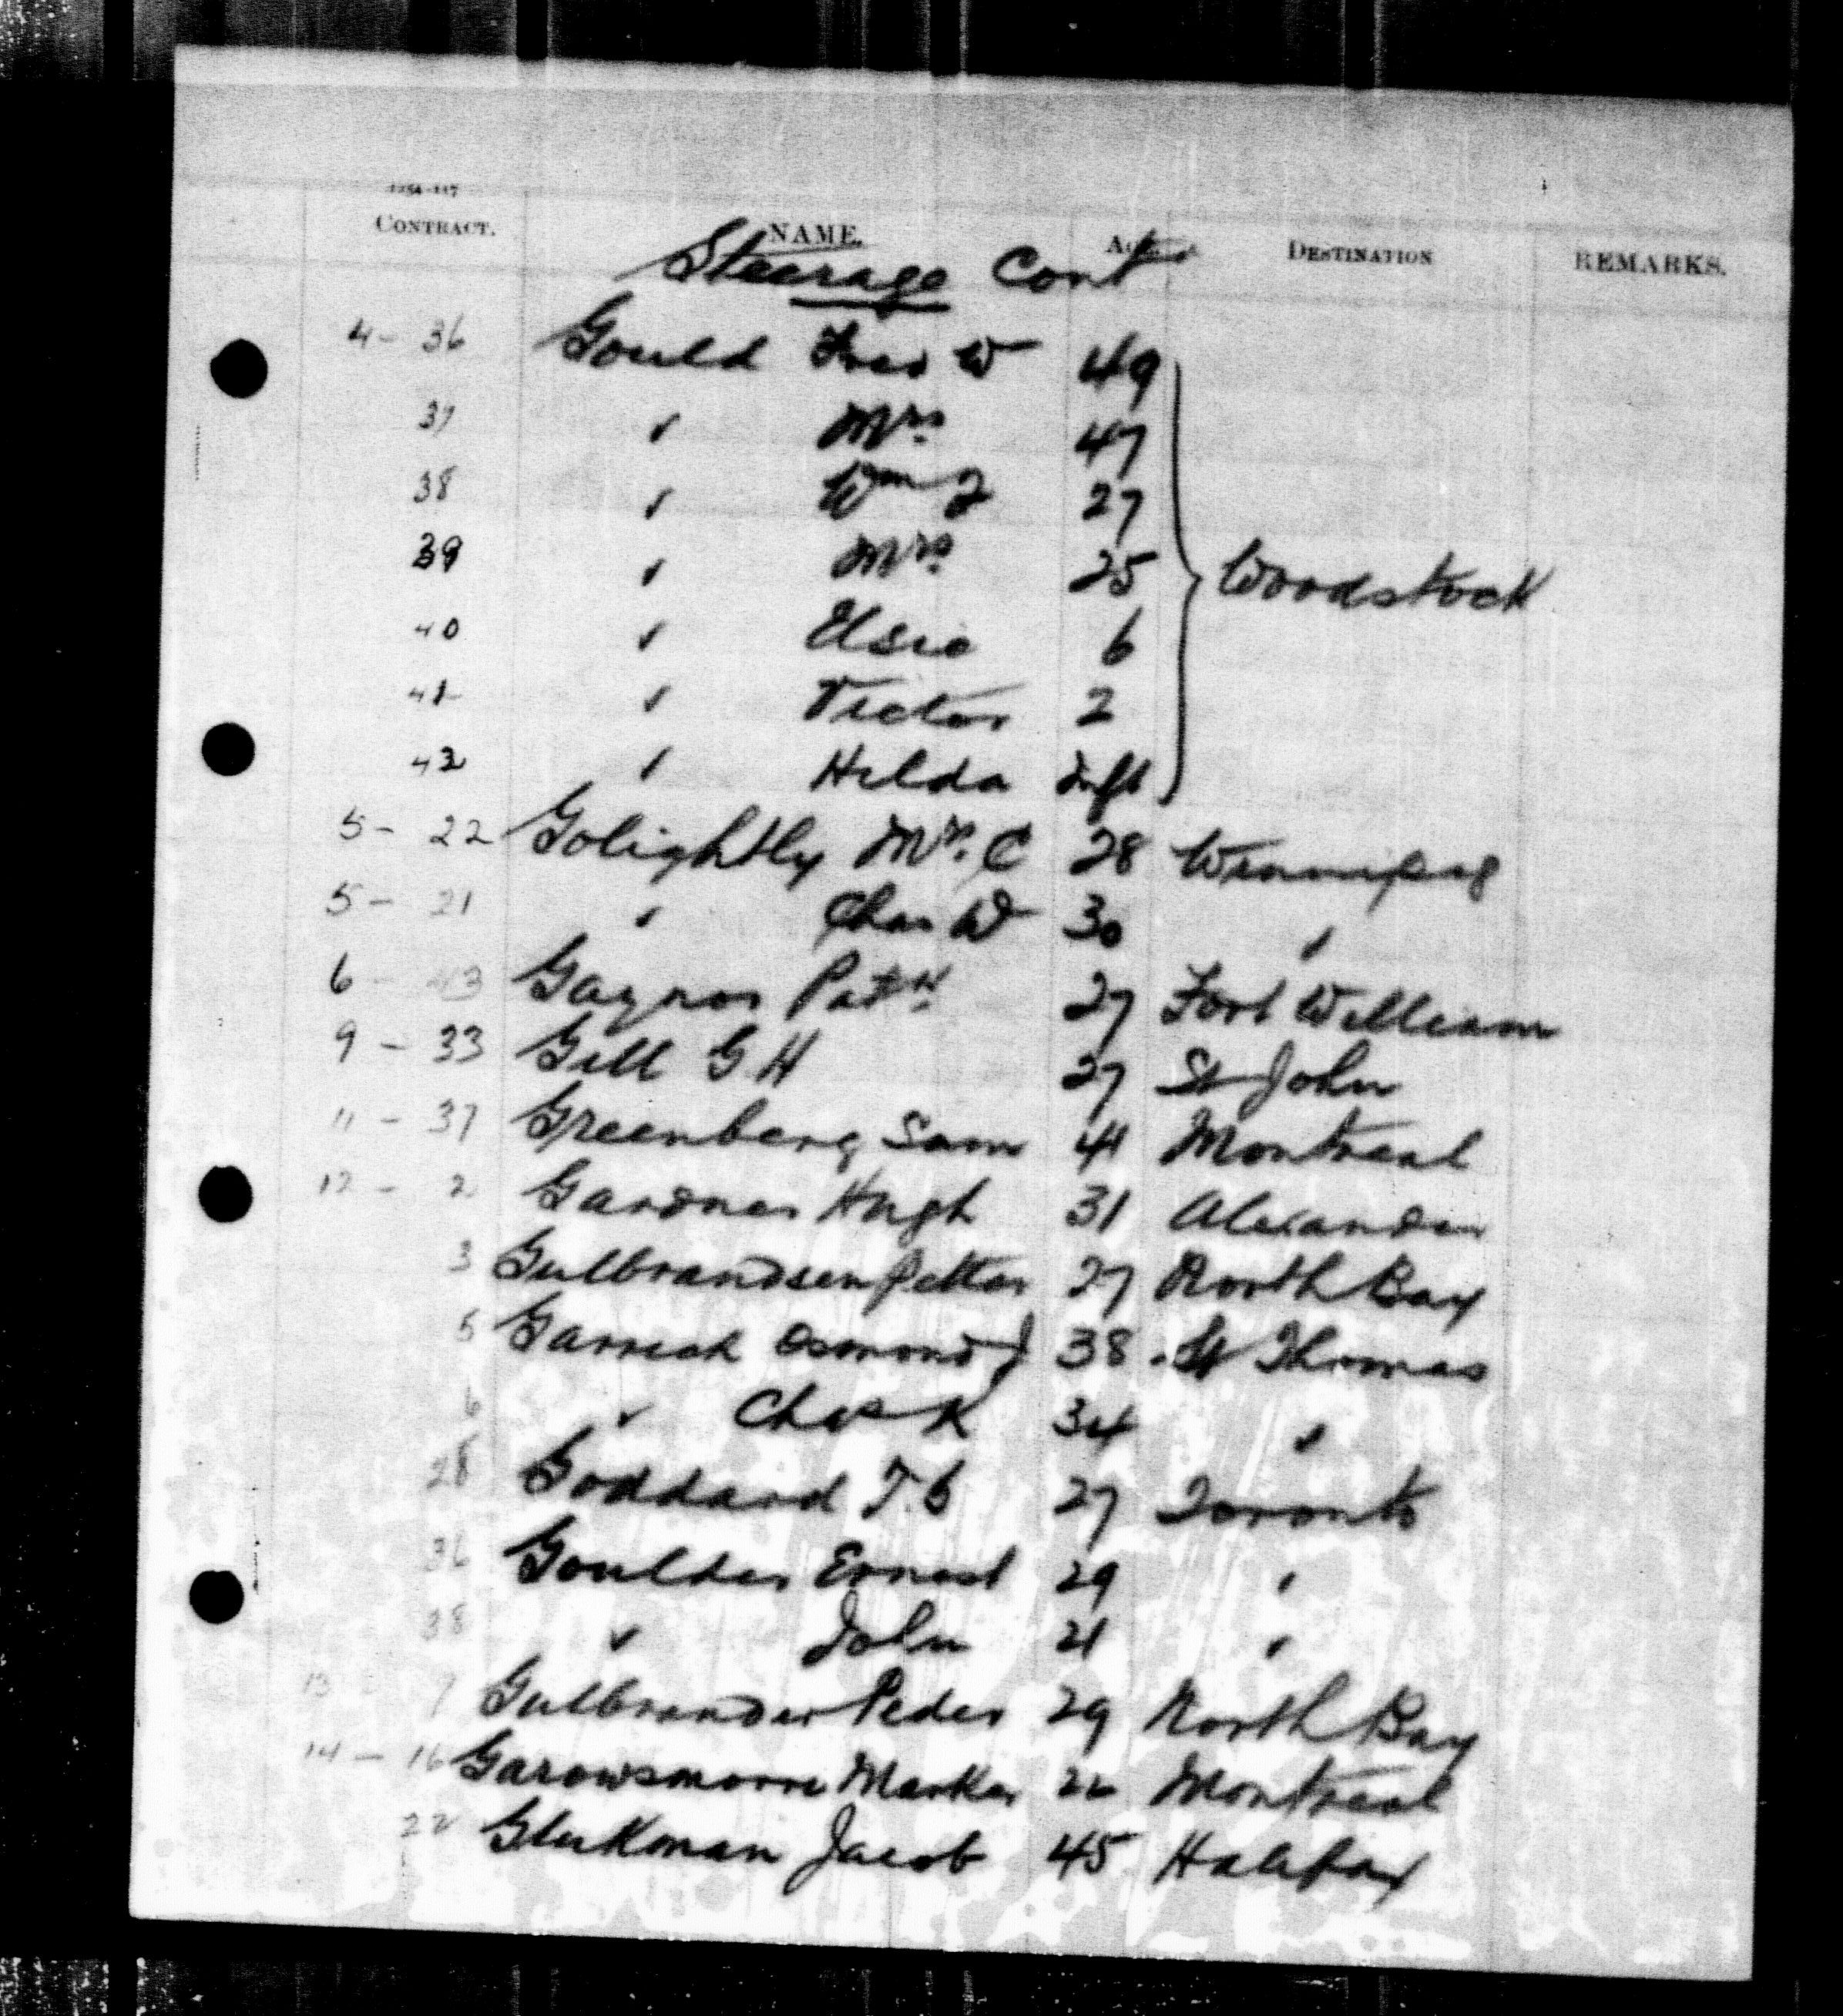 1254-117
CONTRACT. NAME. AGE DESTINATION REMARKS.
Stearage Cont
4 - 36 Gould Fred W 49
37 " Mrs 47
38 " Wm J 27
39 " Mrs 25 Woodstock
40 " Elsie 6
41 " Victor 2
42 " Hilda Inft
5 - 22 Golightly Mrs. C 28 Winnipeg
5 - 21 " Chas W 30 "
6 - 43 Gaynor Patk 27 Fort William
9 - 33 Gill G H 27 St John
11 - 37 Greenberg Sam 41 Montreal
12 - 2 Gardner Hugh 31 Alexander
3 Gulbrandsen Petter 27 North Bay
5 Garrick Osmond J 38 St Thomas
6 " Chas K 34 "
28 Goddard T. G 27 Toronto
36 Goulder Ernest 29 "
38 " John 21 "
13 - 7 Gulbrander Peder 29 North Bay
14 - 16 Markes 22 Montreal
22 Glukman Jacob 45 Halifax